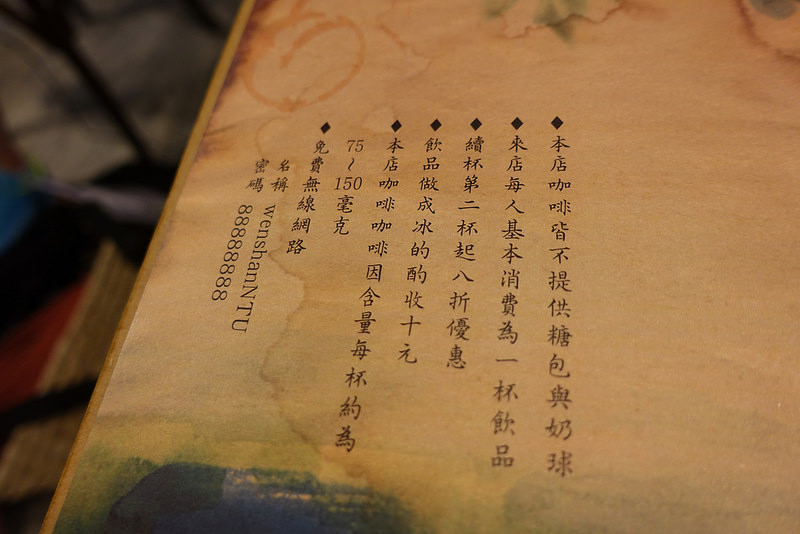 ◆本店咖啡皆不提供糖包與奶球
◆來店每人基本消費為一杯飲品
◆續杯第二杯起八折優惠
◆飲品做成冰的酌收十元
◆本店咖啡咖啡因含量每杯約為
75~150毫克
◆免費無線網路
名稱 wenshanNTU
密碼 88888888